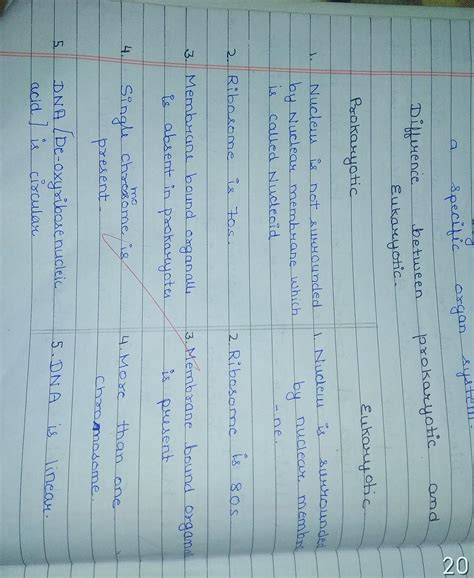 a specific organ system.
Difference between prokaryotic and
Eukaryotic.
Prokaryotic
Eukaryotic
1. Nucleus is not surrounded
by Nuclear membrane which
is called Nucleoid
1. Nucleus is surrounde
by nuclear membra
-ne.
2. Ribosome is 70s.
2. Ribosome is 80s
3. Membrane bound organalle
is absent in prokaryotes
3. Membrane bound organel
is present
4. Single chrosome is
mo
present.
4. More than one
chromosome.
5. DNA [De-oxyribosenucleic
acid] is circular
5. DNA is linear.
20